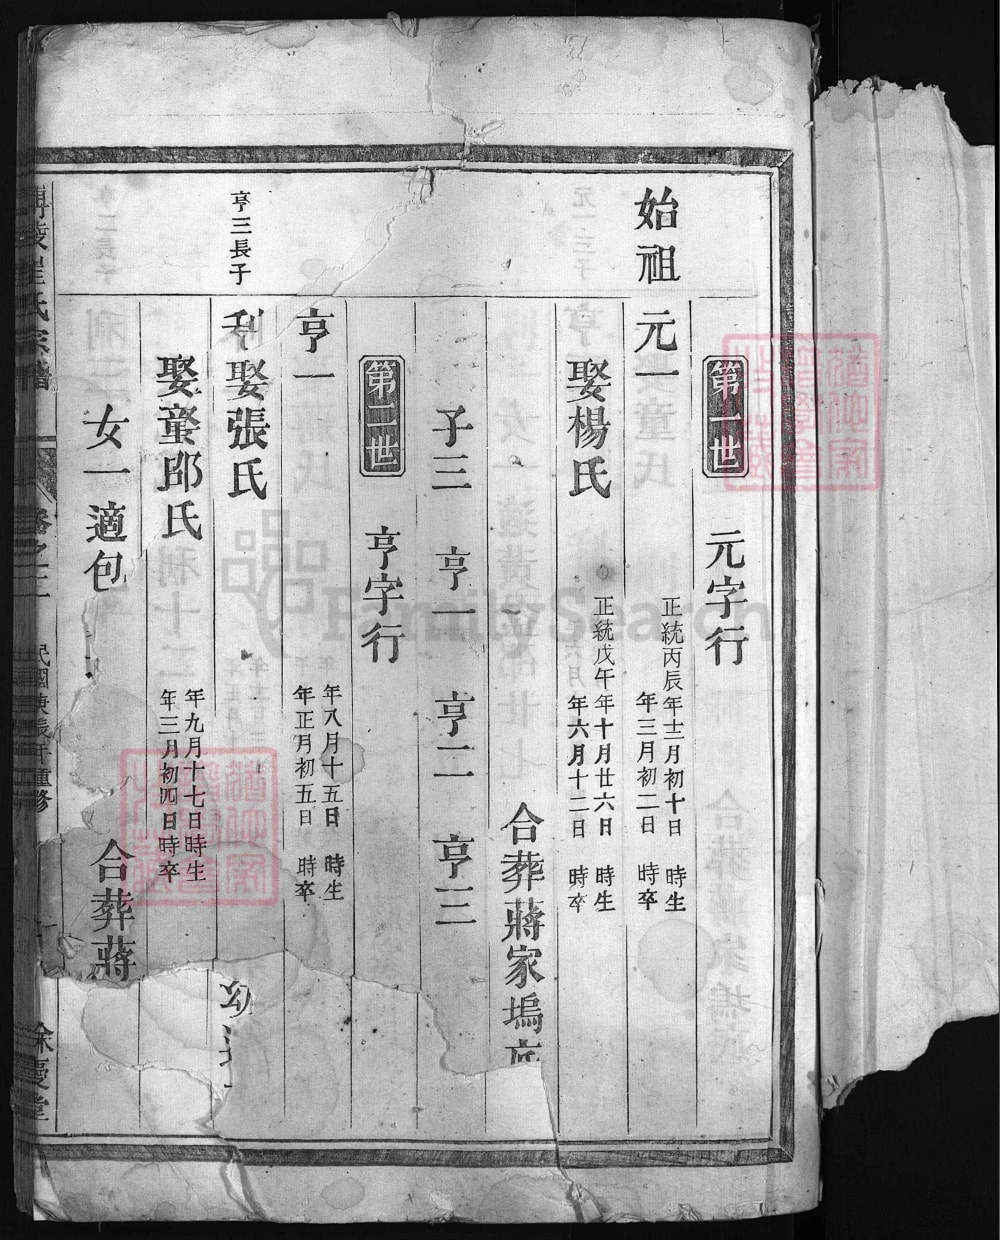 第一世 元字行
始祖 元一 正統丙辰年十二月初十日 時生
年三月初二日 時卒
娶楊氏 正統戊午年十月廿六日 時生
年六月十二日 時卒
合葬蔣家塢底
子三 亨一 亨二 亨三
第二世 亨字行
亨一 年八月十五日 時生
年正月初五日 時卒
亨三長子 利 娶張氏
娶童邱氏 年九月十七日時生
年三月初四日時卒
女一適包 合葬蔣
博陵崔氏宗譜 卷之三 民國庚辰年重修 餘慶堂
FamilySearch